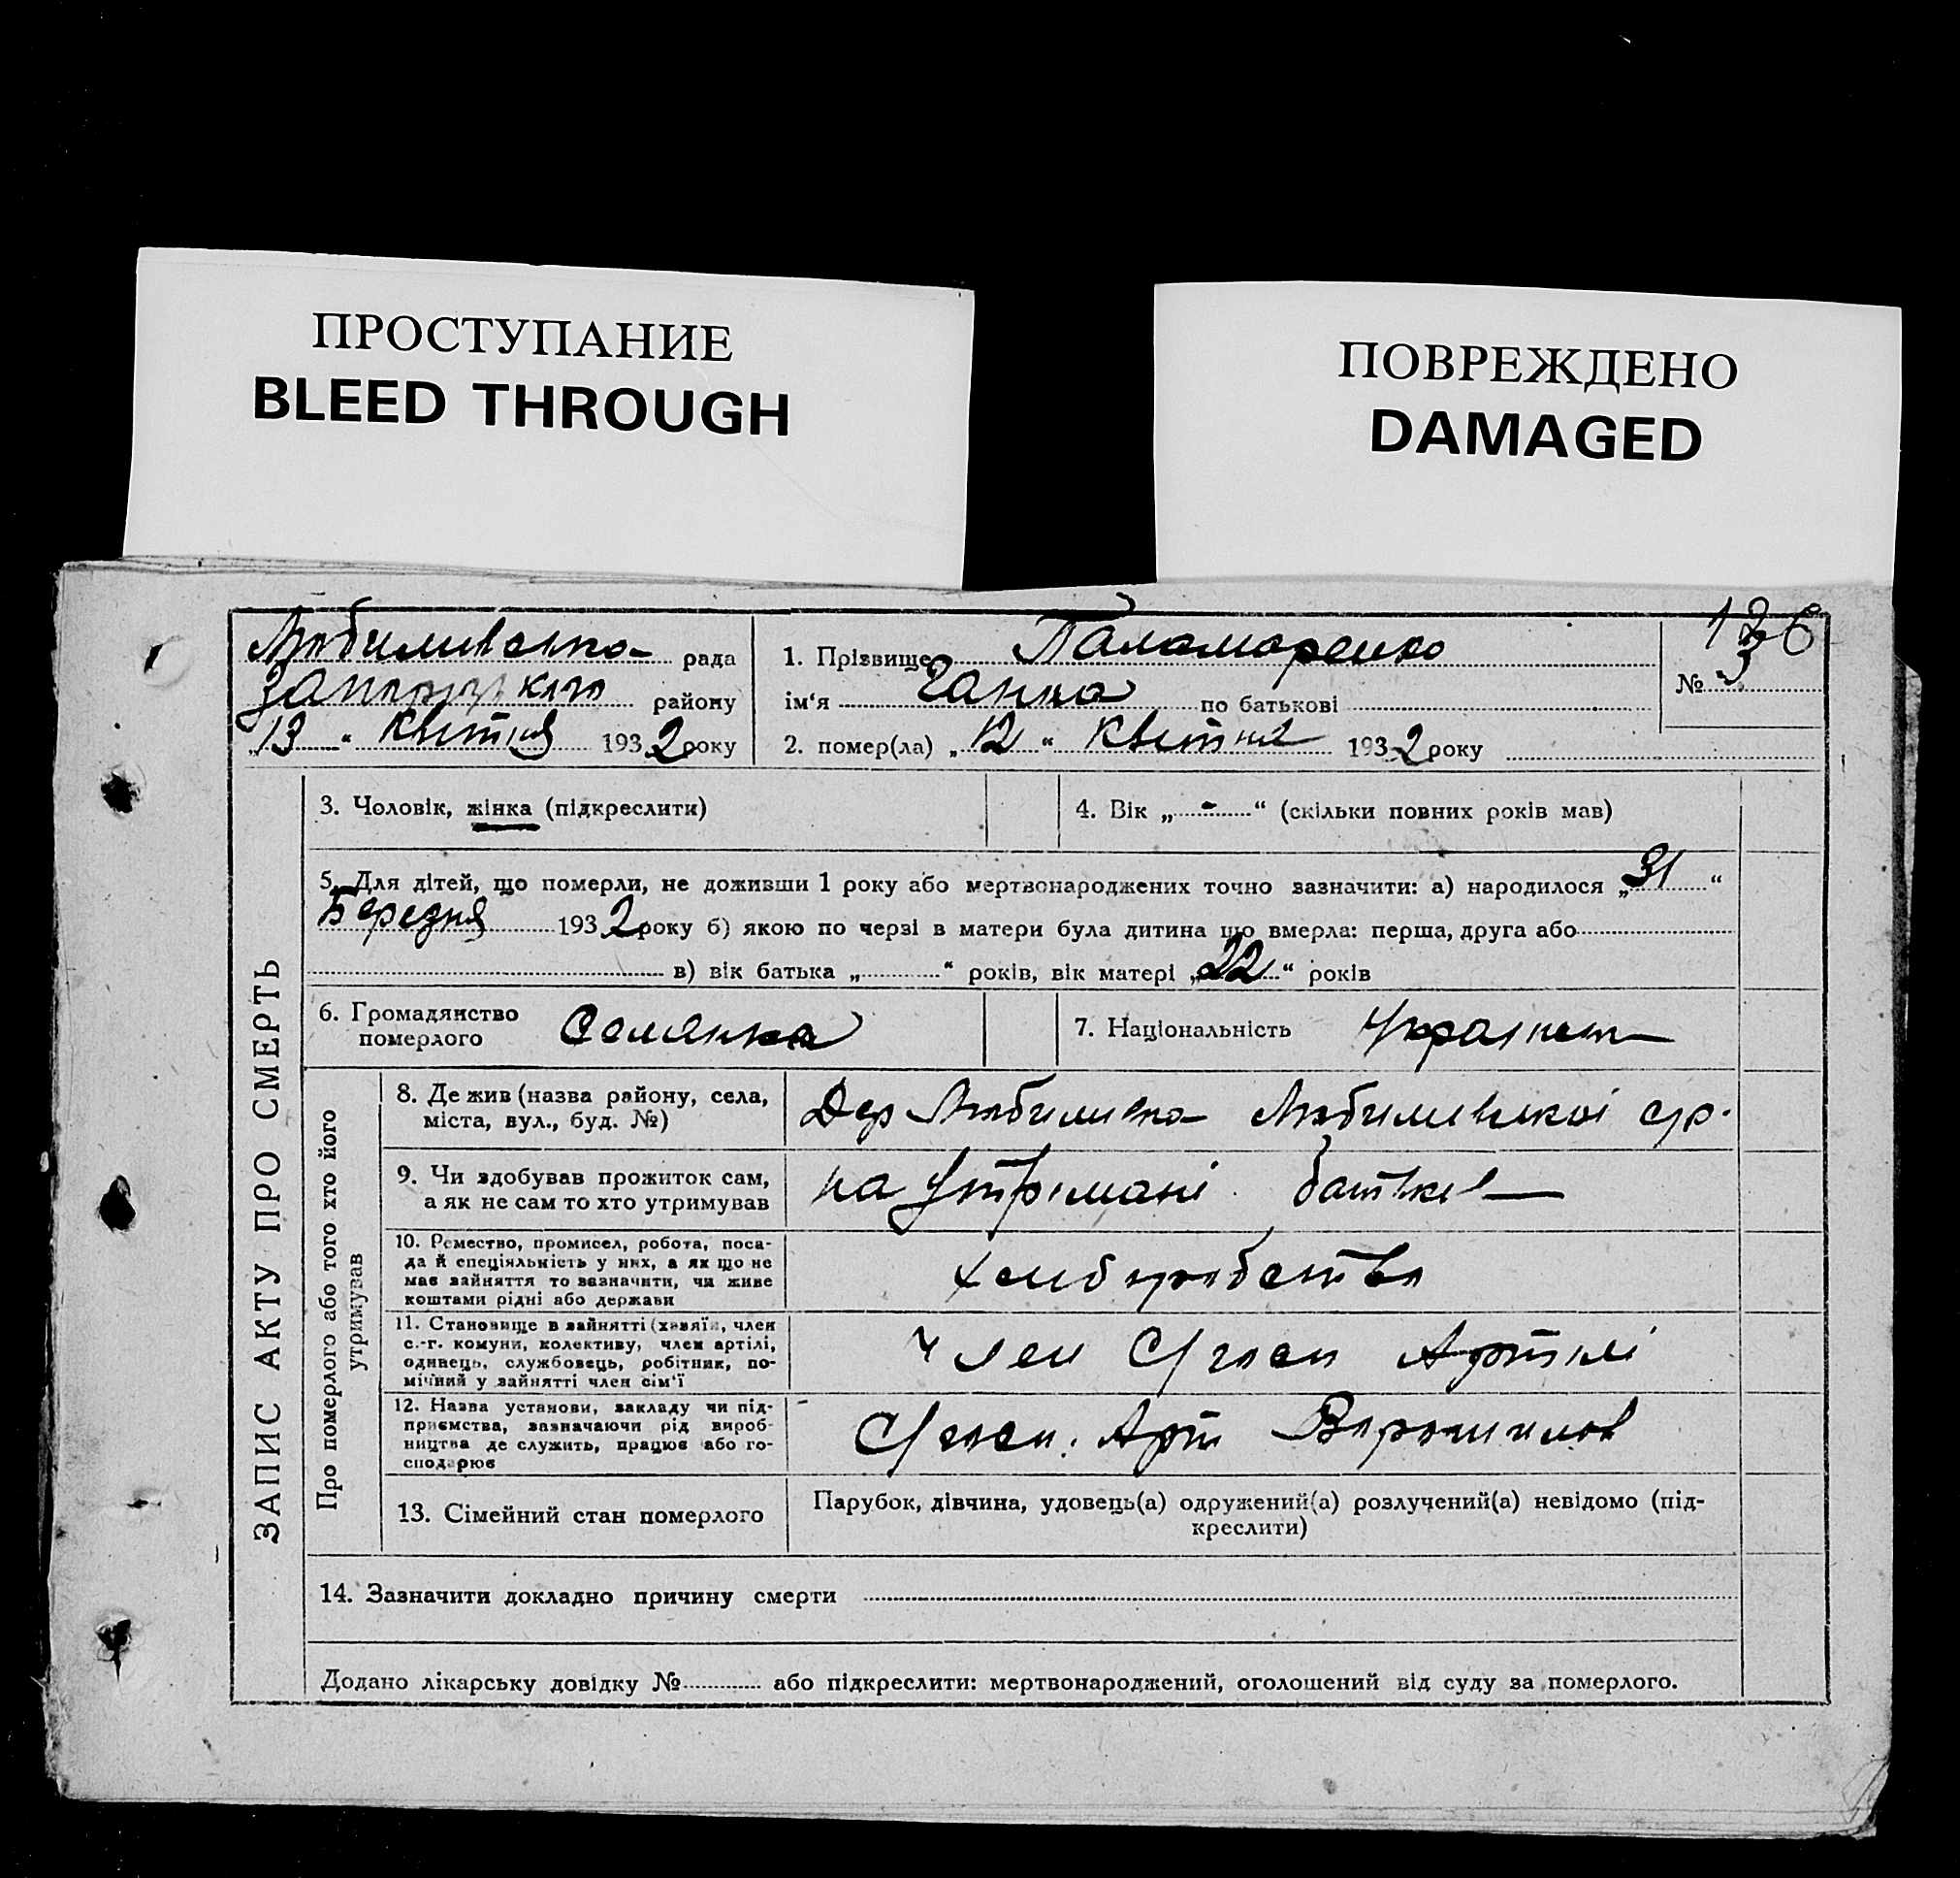 ПРОСТУПАНИЕ
BLEED THROUGH
ПОВРЕЖДЕНО
DAMAGED
126
рада
Запорізького району
„13“ Квітня 1932 року
1. Прізвище Паламаренко
ім‘я Ганна по батькові
2. помер(ла) „12“ Квітня 1932 року
№ 3
ЗАПИС АКТУ ПРО СМЕРТЬ
3. Чоловік, жінка (підкреслити)
4. Вік „-“ (скільки повних років мав)
5. Для дітей, що померли, не доживши 1 року або мертвонароджених точно зазначити: а) народилося „31“
Березня 1932 року б) якою по черзі в матери була дитина що вмерла: перша, друга або
в) вік батька „ “ років, вік матері „22“ років
6. Громадянство
померлого
Селянка
7. Національність
Про померлого або того хто його
утримував
8. Де жив (назва району, села,
міста, вул., буд. №)
Дер Любимівка Любимівської с/р.
9. Чи здобував прожиток сам,
а як не сам то хто утримував
на утрімані батьків
10. Ремество, промисел, робота, поса-
да й спеціяльність у них, а як що не
має зайняття то зазначити, чи живе
коштами рідні або держави
хліборобство
11. Становище в зайнятті (хазяїн, член
с.-г. комуни, колективу, член артілі,
одинець, службовець, робітник, по-
мічний у зайнятті член сім‘ї
Член С/госп Артілі
12. Назва установи, закладу чи під-
приємства, зазначаючи рід вироб-
ництва де служить, працює або го-
сподарює
С/госп. Арт Ворошилов
13. Сімейний стан померлого
Парубок, дівчина, удовець(а) одружений(а) розлучений(а) невідомо (під-
креслити)
14. Зазначити докладно причину смерти
Додано лікарську довідку № або підкреслити: мертвонароджений, оголошений від суду за померлого.